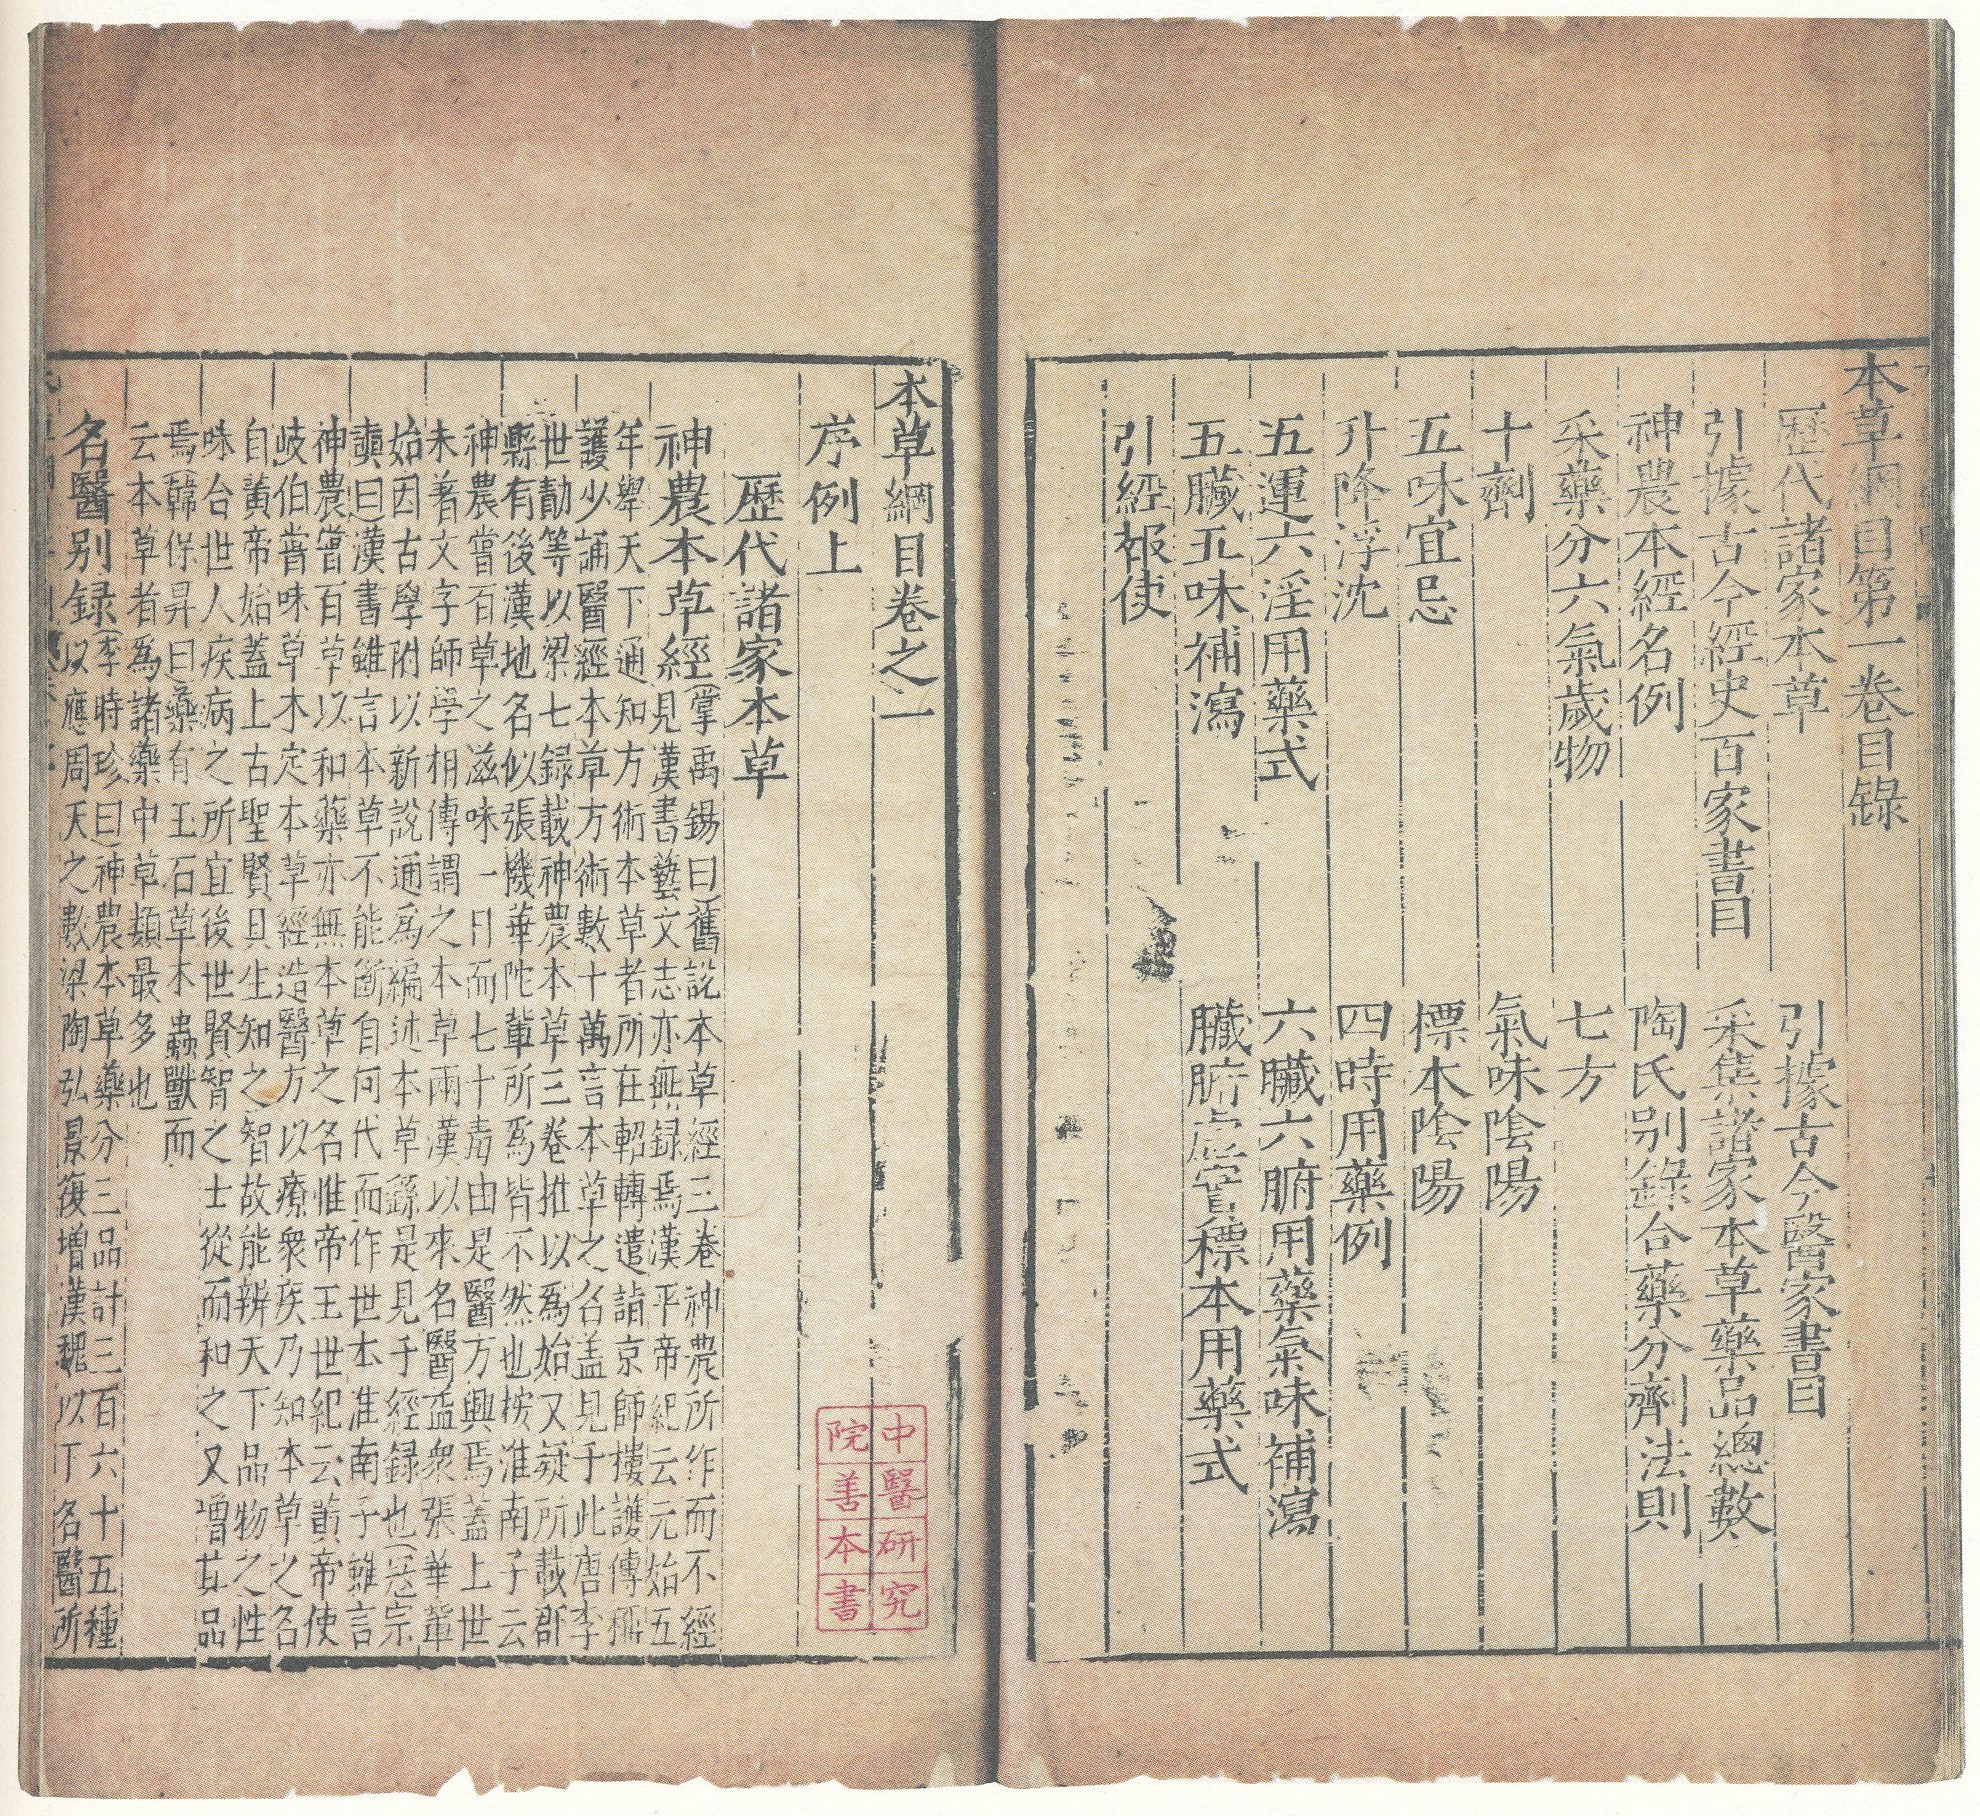 本草綱目第一卷目錄
歷代諸家本草　引據古今醫家書目
引據古今經史百家書目　采集諸家本草藥品總數
神農本經名例　陶氏別錄合藥分劑法則
采藥分六氣歲物　七方
十劑　氣味陰陽
五味宜忌　標本陰陽
升降浮沈　四時用藥例
五運六淫用藥式　六臟六腑用藥氣味補瀉
五臟五味補瀉　臟腑虛實標本用藥式
引經報使
本草綱目卷之一
序例上
歷代諸家本草
神農本草經(掌禹錫曰)舊說本草經三卷神農所作而不經
見漢書藝文志亦無録焉漢平帝紀云元始五
年舉天下通知方術本草者所在軺轉遣詣京師樓護傳稱
護少誦醫經本草方術數十萬言本草之名蓋見于此唐李
世勣等以梁七録載神農本草三卷推以爲始又疑所載郡
縣有後漢地名似張機華陀輩所爲皆不然也按淮南子云
神農嘗百草之滋味一日而七十毒由是醫方興焉蓋上世
未著文字師學相傳謂之本草兩漢以來名醫益衆張華輩
始因古學附以新說通爲編述本草繇是見于經録也(寇宗
奭曰)漢書雖言本草不能斷自何代而作世本淮南子雖言
神農嘗百草以和藥亦無本草之名惟帝王世紀云黄帝使
岐伯嘗味草木定本草經造醫方以療衆疾乃知本草之名
自黄帝始蓋上古聖賢具生知之智故能辨天下品物之性
味合世人疾病之所宜後世賢智之士從而和之又增其品
焉(韓保昇曰)藥有玉石草木蟲獸而
云本草者爲諸藥中草類最多也
名醫别録(李時珍曰)神農本草藥分三品計三百六十五種
以應周天之數梁陶弘景復增漢魏以下名醫所
中醫研究
院善本書